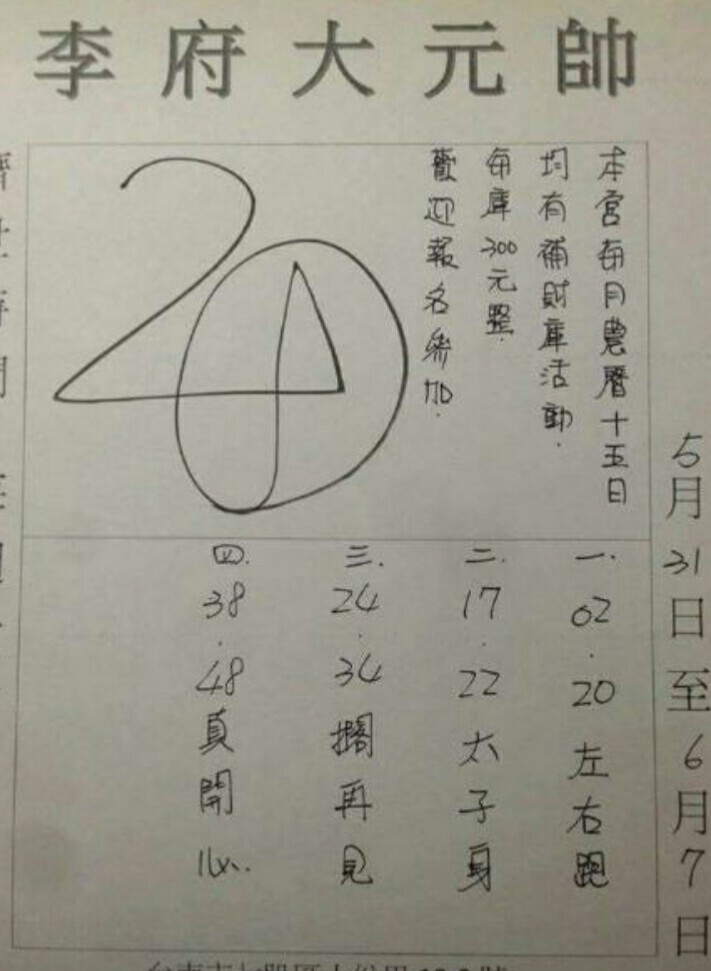 李府大元帥
本宮每月農曆十五日
均有補財庫活動.
每庫300元整.
歡迎報名參加.
5月31日至6月7日
一. 02.20左右跑
二. 17.22太子身
三. 24.34擱再見
四. 38.48真開心.